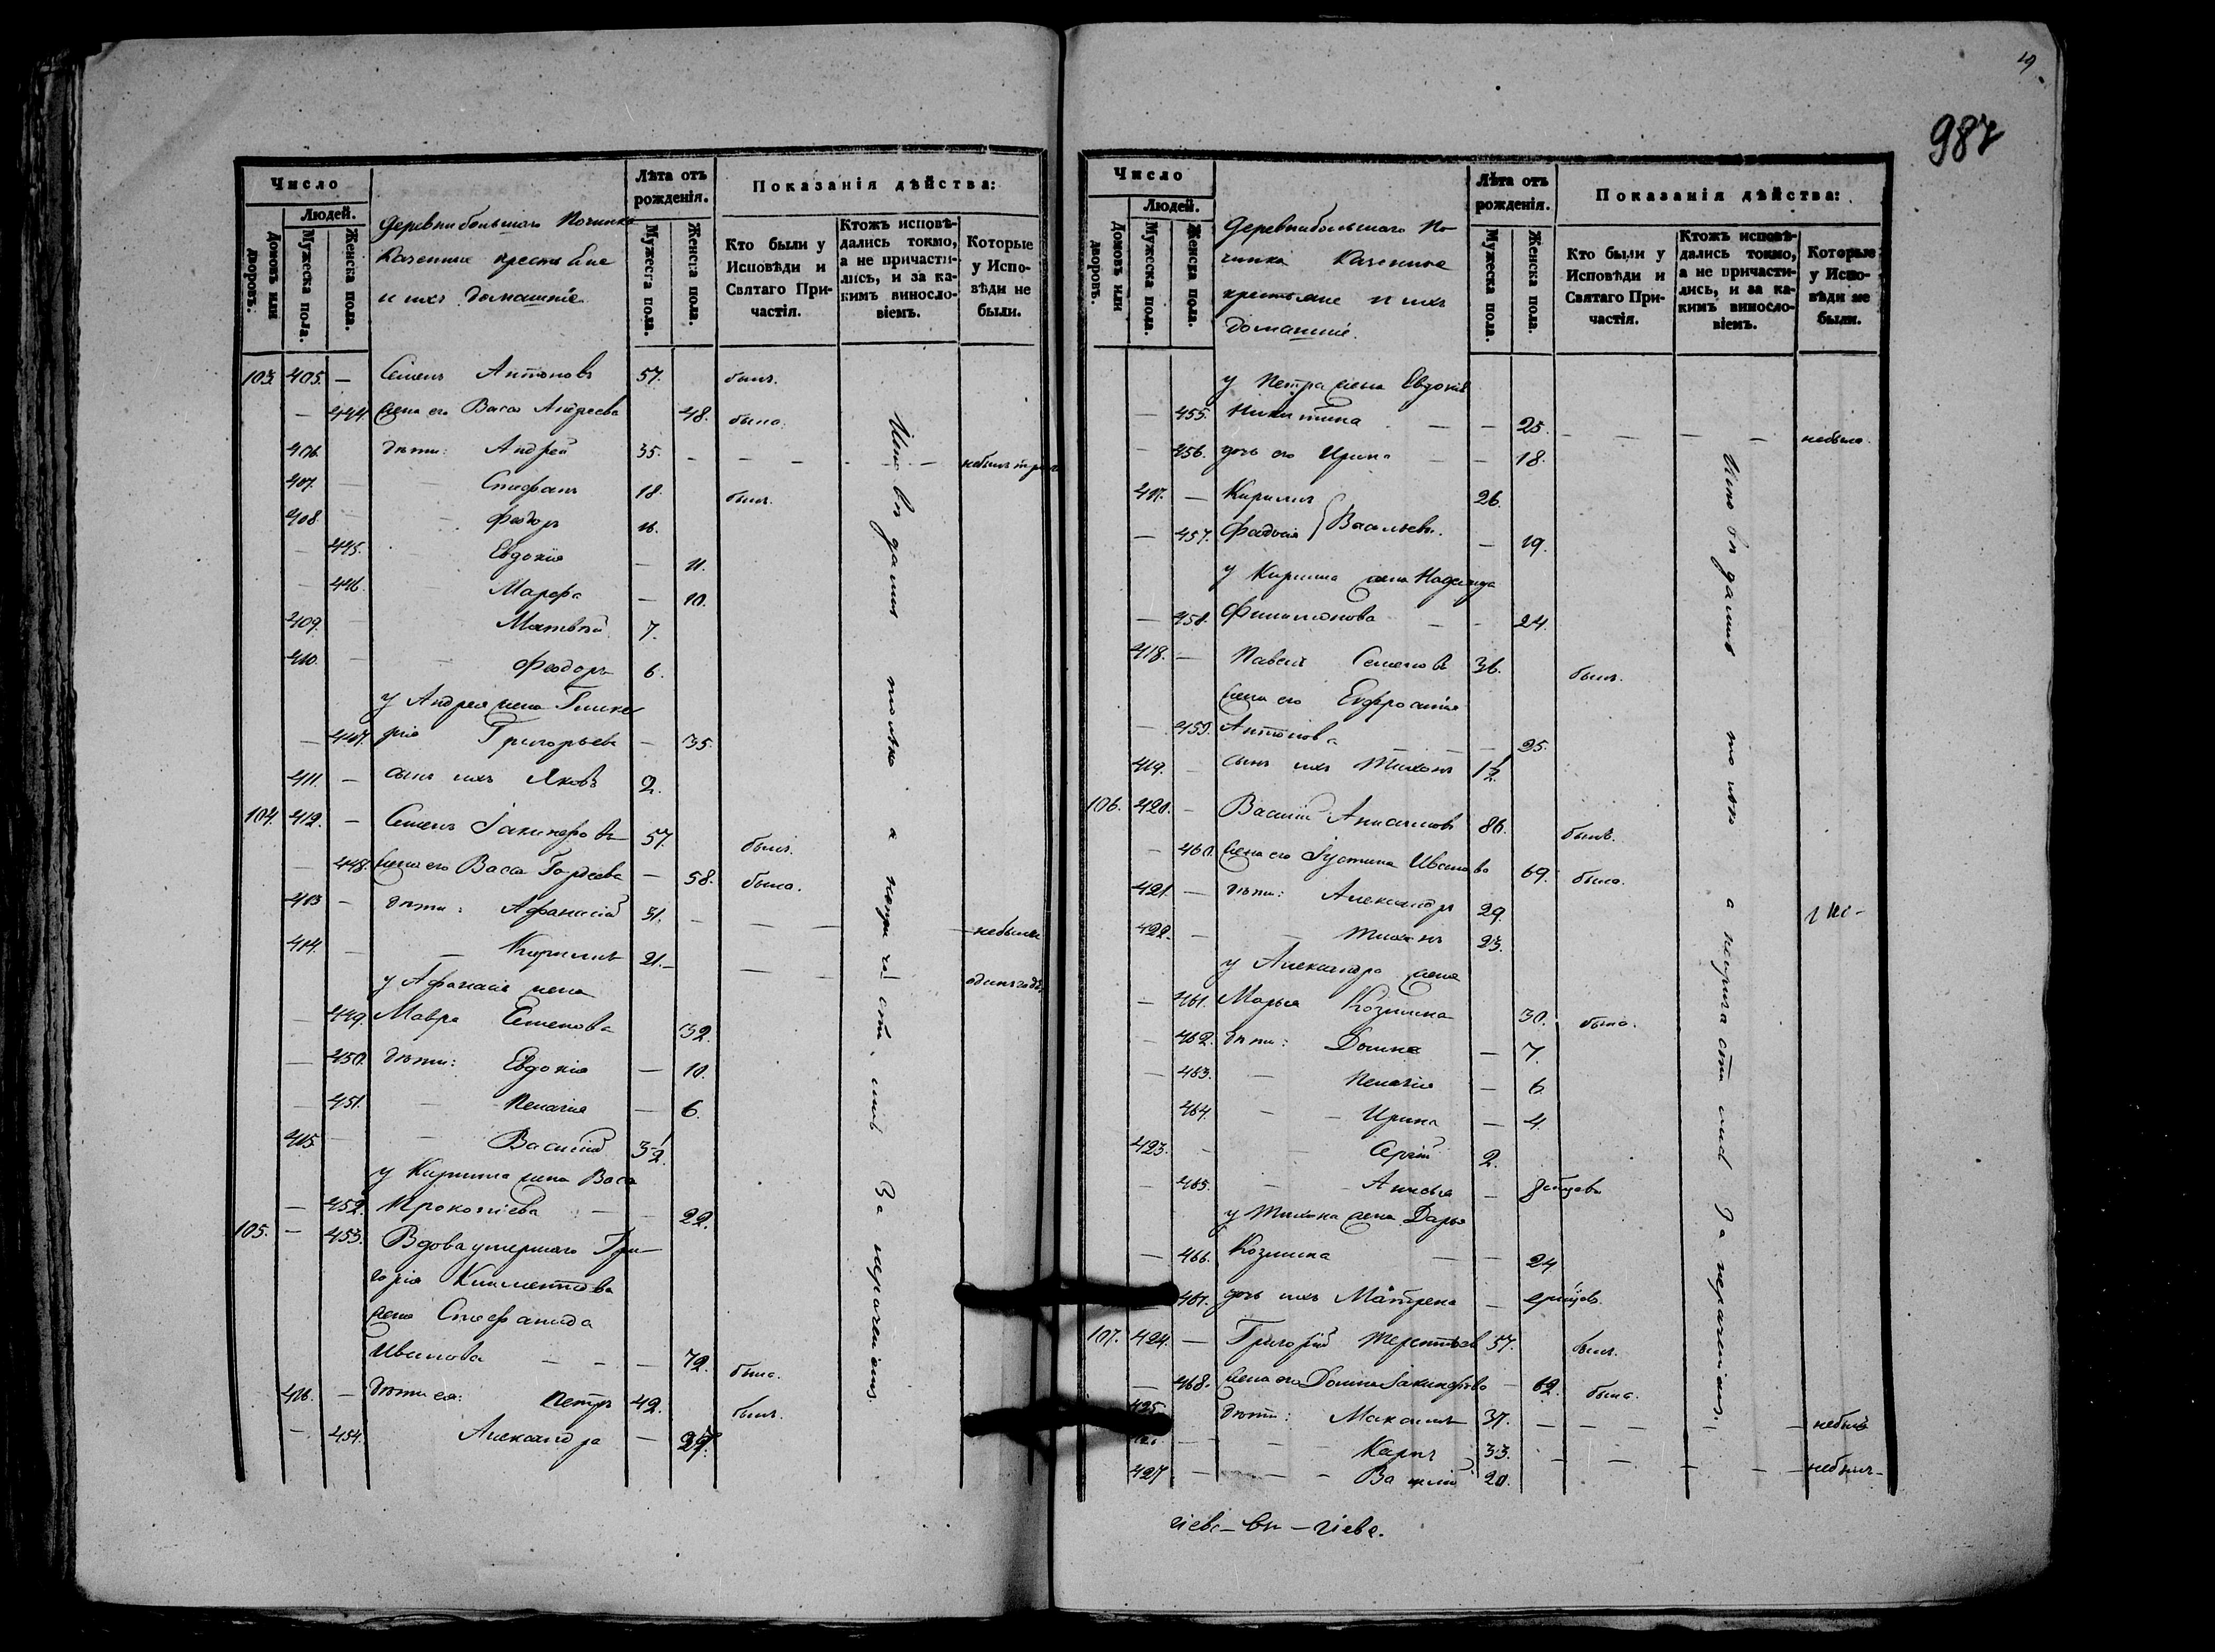 Число
Людей.
Домовъ или дворовъ.
Мужеска пола.
Женска пола.
деревни большаго Починка
Казенные крестьяне
и ихъ домашніе
Лѣта отъ рожденія.
Мужеска пола.
Женска пола.
Показанія дѣйства:
Кто были у Исповѣди и Святаго Причастія.
Ктожъ исповѣдались токмо, а не причастились, и за какимъ винословіемъ.
Которые у Исповѣди не были.
103. 405. — Семенъ Антоновъ 57. былъ.
— 444. жена его Васа Андреева 48. была.
406. дѣти: Андрей 35. — — — — —
407. — — Стефанъ 18. былъ.
408. — Феодоръ 16.
— 445. Евдокія — 11.
— 446. Марфа — 10.
409. — Матвѣй 7.
410. — — Феодоръ 6.
у Андрея жена Глике
— 447. рія Григорьева — 35.
411. — сынъ ихъ Яковъ 2.
104. 412. — Семенъ Іакинфовъ 57. былъ.
— 448. жена его Васа Гордеева — 58. была.
413 — дѣти: Афанасій 31. — — — — небыли
414. — — Кирилъ 21. — — — одинъ годъ
у Афанасія жена
— 449. Мавра Семенова 32.
— 450. дѣти: Евдокія — 10.
— 451. — Пелагія — 6.
415. — — Василій 3 1/2.
у Кирила жена Васа
— 452. Прокопіева — — 22.
105. — 453. Вдова умершаго Гри-
горія Климентова
жена Стефанида
Иванова — — — 72. была.
416. — дѣти ея: Петръ 42. былъ.
— 454. Александра — 29.
Кто въ данъ только а непричастились за нераченіемъ.
19
987
Число
Людей.
Домовъ или дворовъ.
Мужеска пола.
Женска пола.
деревни большаго По-
чинка Казенные
крестьяне и ихъ
домашніе.
Лѣта отъ рожденія.
Мужеска пола.
Женска пола.
Показанія дѣйства:
Кто были у Исповѣди и Святаго Причастія.
Ктожъ исповѣдались токмо, а не причастились, и за какимъ винословіемъ.
Которые у Исповѣди не были.
у Петра жена Евдокія
— 455. Никитина — — 25. — — — — небыла.
— 456. дочь его Ирина — — 18.
417. — Кирилъ 26.
— 457. Фадосія } Васильевы. — 19.
у Кирила жена Надежда
— 458. Филимонова — — 24.
418. — Павелъ Семеновъ 36. былъ.
жена его Евфросинія
— 459. Антонова — — — 25.
419. — сынъ ихъ Тихонъ 1 1/2.
106. 420. — Василій Анисимовъ 86. былъ.
— 460. жена его Іустина Иванова 69. была.
421. — дѣти: Александръ 29.
422. — — Тихонъ 23.
у Александра жена
— 461. Марья Козмина 30. была.
— 462. дѣти: Домна — 7.
— 463. — Пелагія — 6.
464. — — Ирина — 4.
423. — — Сергій 2.
— 465. — Анисья —
у Тихона жена Дарья
— 466. Козмина — — 24
467. дочь ихъ Матрена —
107. 424. — Григорій Терентьевъ 57. былъ.
— 468. жена его Домна Іакинфова — 62. была.
425. дѣти: Максимъ 37. — — — — — небылъ
— — — Карпъ 33. — — — — — небылъ —
427 — — — Василій 20.